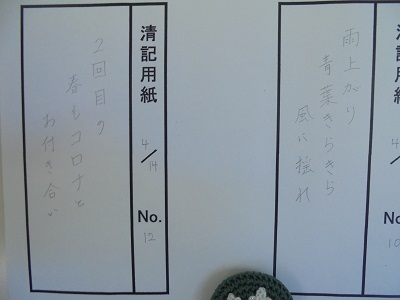 雨上がり
青葉きらきら
風に揺れ
清記用紙 4/14 No. 12
2回目の
春もコロナと
お付き合い